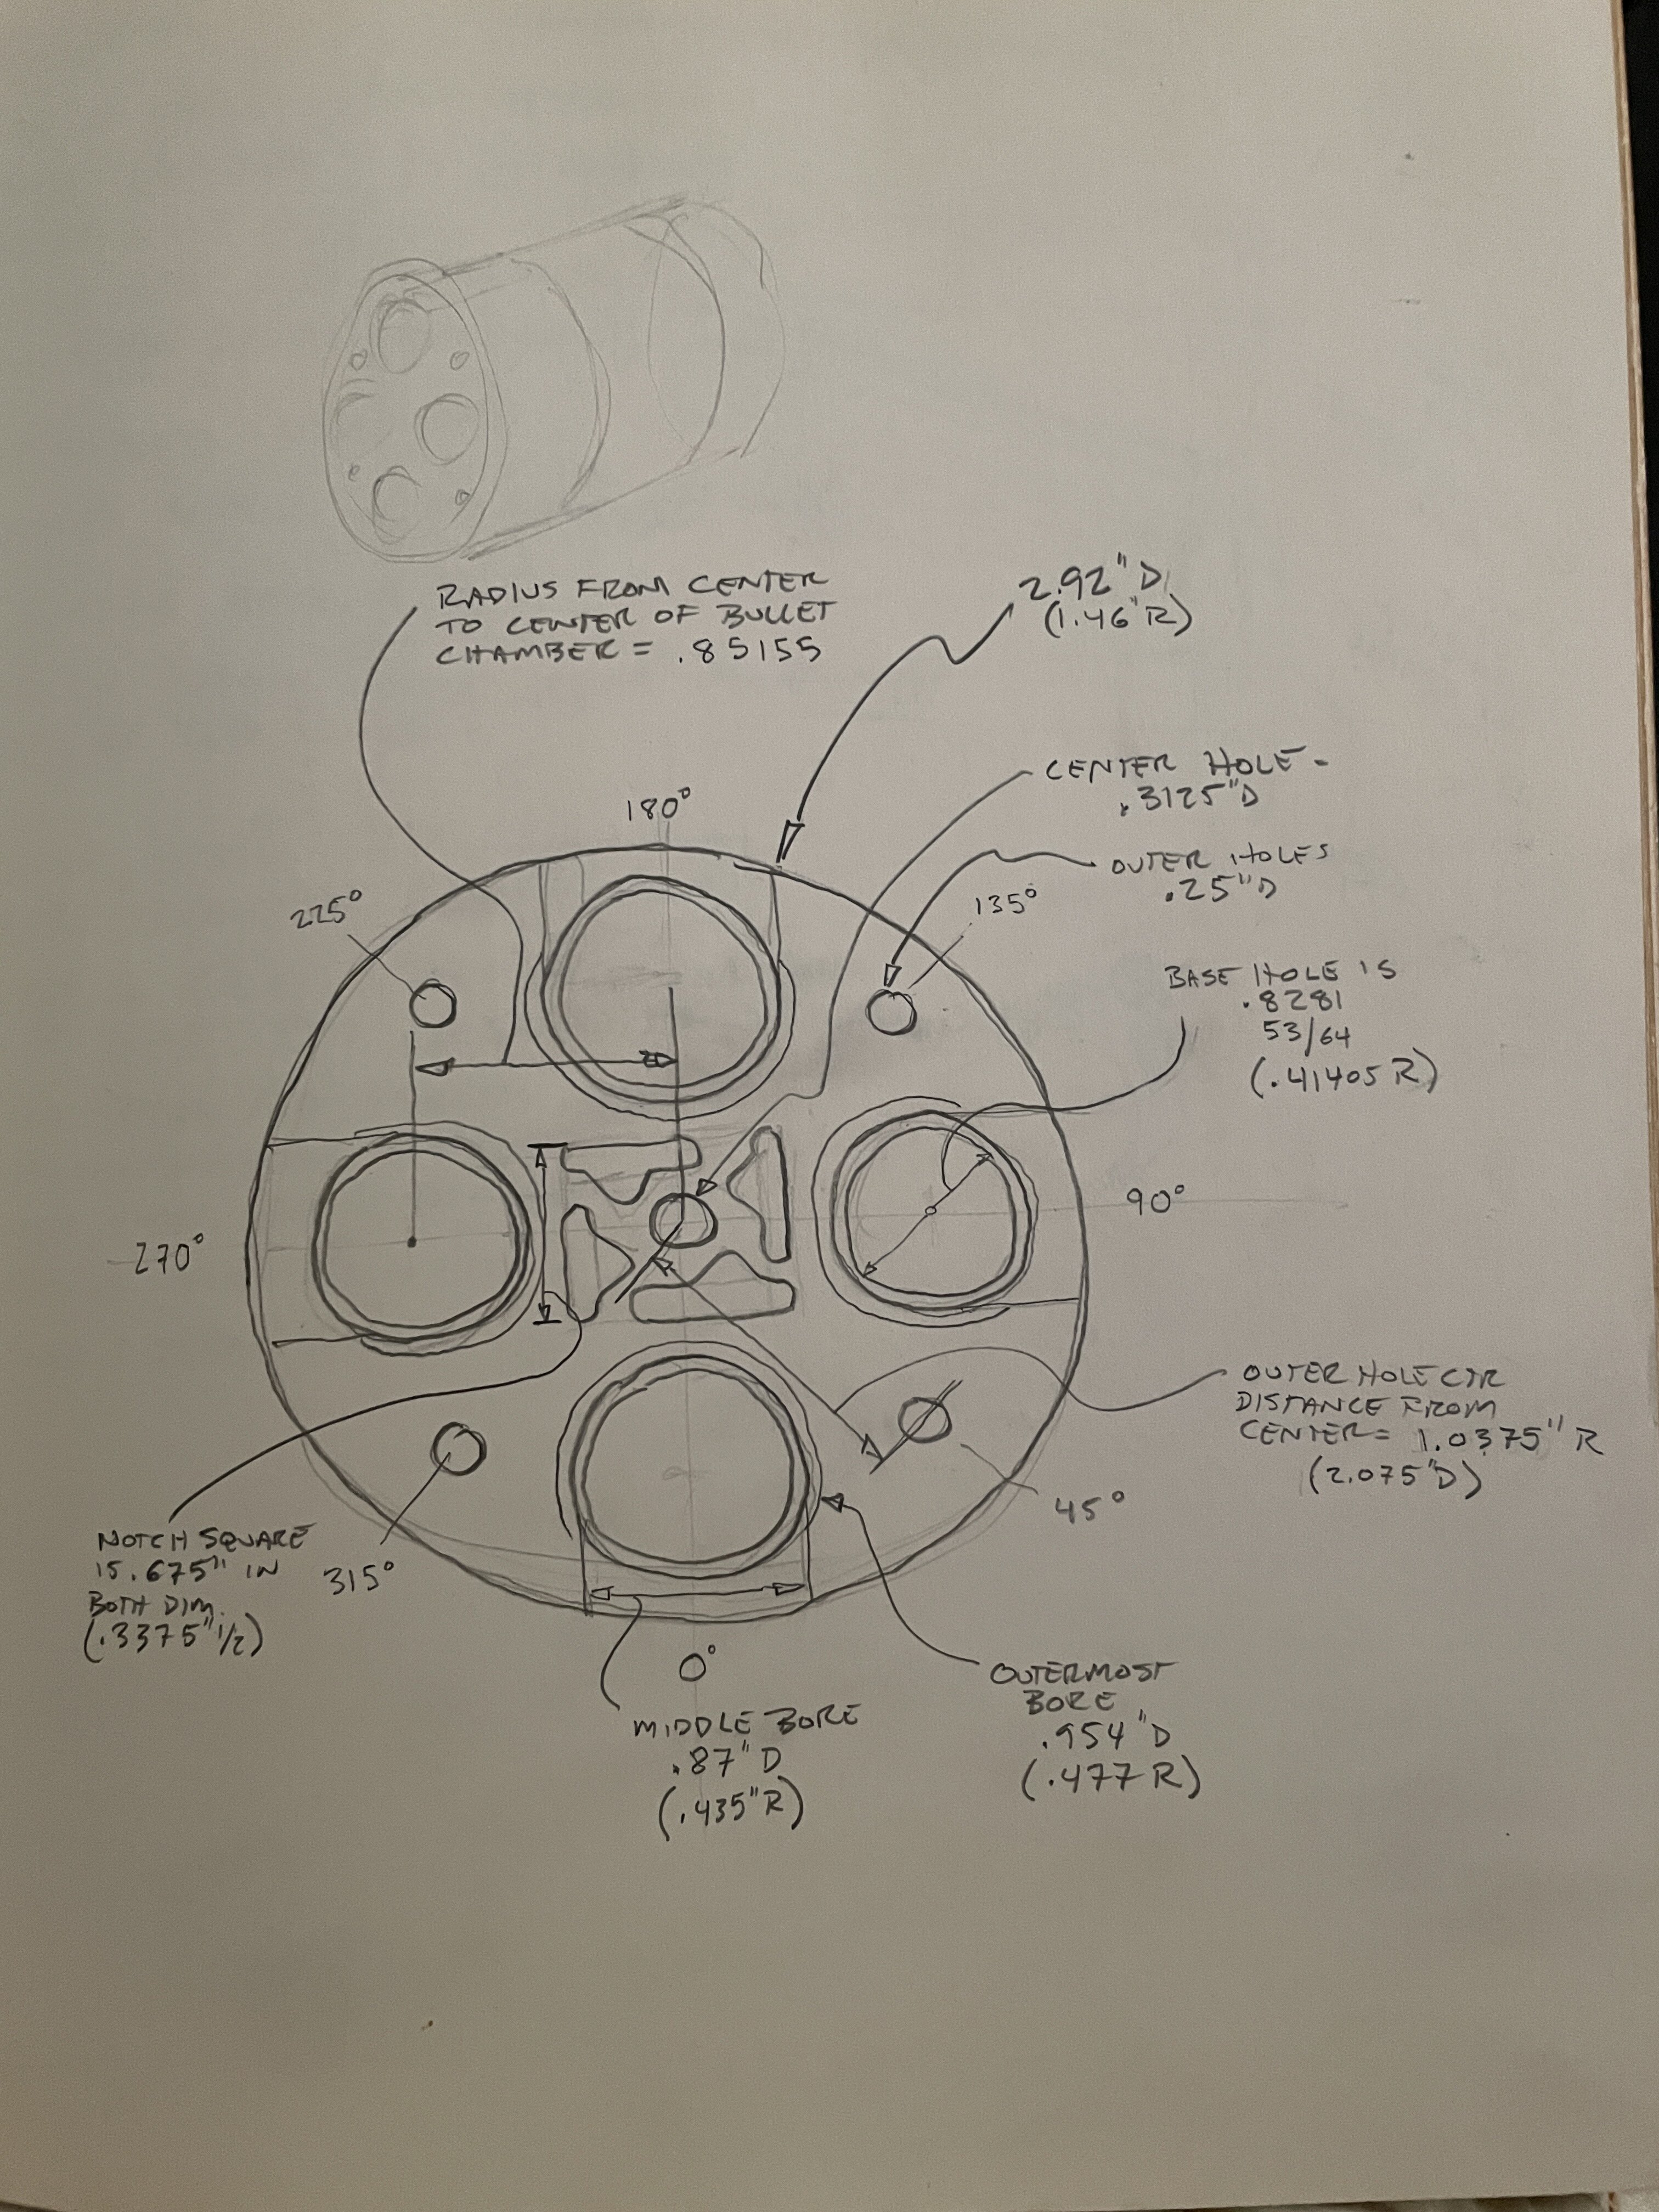 RADIUS FROM CENTER
TO CENTER OF BULLET
CHAMBER = .85155
2.92" D
(1.46" R)
CENTER HOLE -
.3125"D
OUTER HOLES
.25"D
180°
225°
135°
BASE HOLE IS
.8281
53/64
(.41405 R)
90°
270°
OUTER HOLE CTR
DISTANCE FROM
CENTER = 1.0375" R
(2.075"D)
45°
NOTCH SQUARE
IS .675" IN
BOTH DIM.
(.3375" 1/2)
315°
0°
MIDDLE BORE
.87" D
(.435"R)
OUTERMOST
BORE
.954" D
(.477 R)